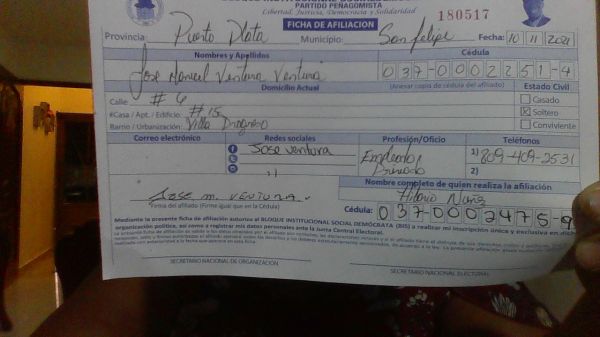 BLOQUE INSTITUCIONAL SOCIAL DEMÓCRATA
PARTIDO PEÑAGOMISTA
Libertad, Justicia, Democracia y Solidaridad
180517
FICHA DE AFILIACION
Provincia: Puerto Plata Municipio: San felipe Fecha: 10 11 2021
Nombres y Apellidos Cédula
Jose Manuel Ventura Ventura 037-0002251-4
Domicilio Actual (Anexar copia de cédula del afiliado) Estado Civil
Calle: # 6 Casado
#Casa / Apt. / Edificio: # 15 X Soltero
Barrio / Urbanización: Villa Progreso Conviviente
Correo electrónico Redes sociales Profesión/Oficio Teléfonos
Jose ventura Empleado 1) 809-409-2531
Privado 2)
Nombre completo de quien realiza la afiliación
JOSE M. VENTURA. Hilario Nuñez
Firma del afiliado (Firme igual que en la Cédula) Cédula: 037-0002475-9
Mediante la presente ficha de afiliación autorizo al BLOQUE INSTITUCIONAL SOCIAL DEMÓCRATA (BIS) a realizar mi inscripción única y exclusiva en dicha
organización política, así como a registrar mis datos personales ante la Junta Central Electoral.
SECRETARIO NACIONAL DE ORGANIZACIÓN SECRETARIO NACIONAL ELECTORAL